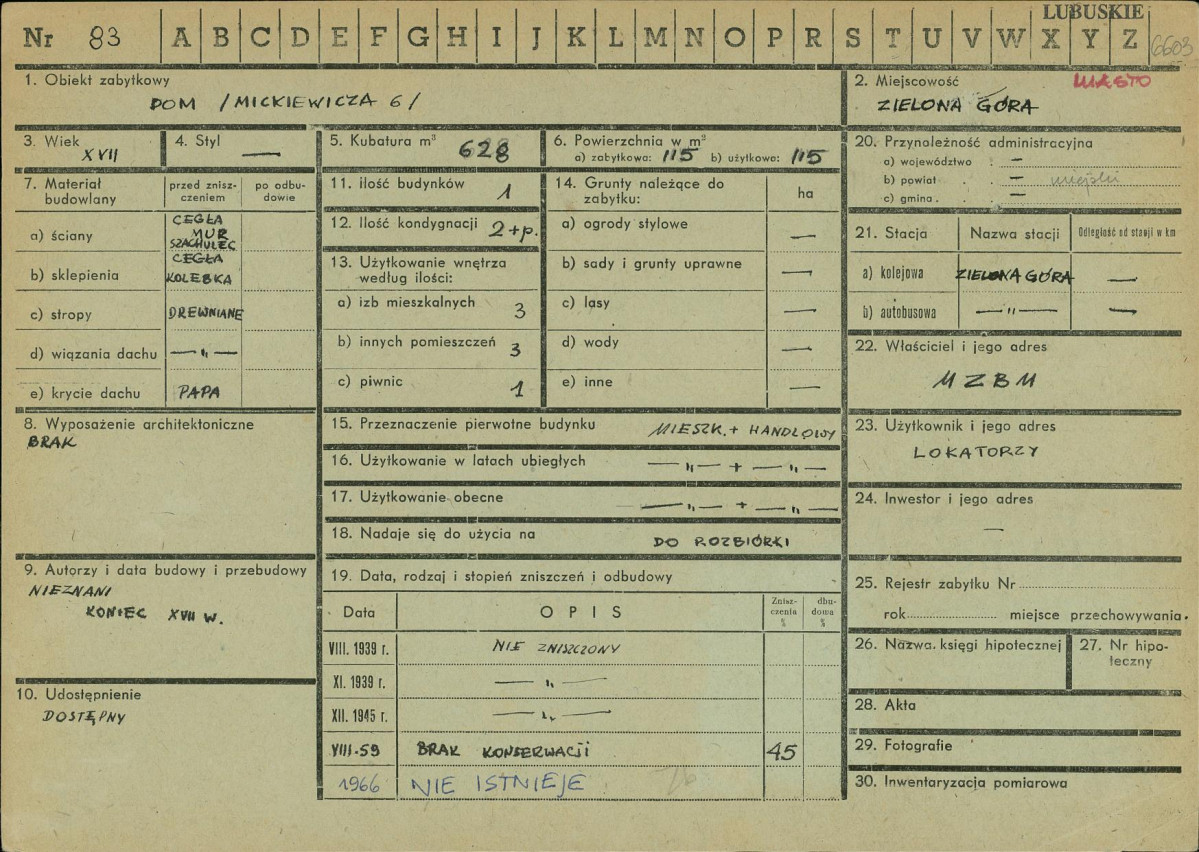 LUBUSKIE
Nr 83 A B C D E F G H I J K L M N O P R S T U V W X Y Z 6603
1. Obiekt zabytkowy
DOM /MICKIEWICZA 6/
2. Miejscowość MIASTO
ZIELONA GÓRA
3. Wiek
XVII
4. Styl
—
5. Kubatura m³
628
6. Powierzchnia w m²
a) zabytkowa: 115 b) użytkowa: 115
20. Przynoleżność administracyjna
a) województwo . —
b) powiat . . — miejski
c) gmina . . —
7. Materiał budowlany
przed znisz-
czeniem
po odbu-
dowie
a) ściany
CEGŁA
MUR
SZACHULEC
b) sklepienia
CEGŁA
KOLEBKA
c) stropy DREWNIANE
d) wiązania dachu —„—
e) krycie dachu PAPA
11. ilość budynków 1
12. Ilość kondygnacji 2+p.
13. Użytkowanie wnętrza
według ilości:
a) izb mieszkalnych 3
b) innych pomieszczeń 3
c) piwnic 1
14. Grunty należące do
zabytku:
ha
a) ogrody stylowe —
b) sady i grunty uprawne —
c) lasy —
d) wody —
e) inne —
21. Stacja Nazwa stacji Odległość od stacji w km
a) kolejowa ZIELONA GÓRA —
b) autobusowa —„— —
22. Właściciel i jego adres
MZBM
8. Wyposażenie architektoniczne
BRAK
15. Przeznaczenie pierwotne budynku MIESZK. + HANDLOWY
16. Użytkowanie w latach ubiegłych —„— + —„—
17. Użytkowanie obecne —„— + —„—
18. Nadaje się do użycia na DO ROZBIÓRKI
23. Użytkownik i jego adres
LOKATORZY
24. Inwestor i jego adres
—
9. Autorzy i data budowy i przebudowy
NIEZNANI
KONIEC XVII W.
10. Udostępnienie
DOSTĘPNY
19. Data, rodzaj i stopień zniszczeń i odbudowy
Data OPIS
Znisz-
czenia
%
dbu-
dowa
%
VIII. 1939 r. NIE ZNISZCZONY
XI. 1939 r. —„—
XII. 1945 r. —„—
VIII-59 BRAK KONSERWACJI 45
1966 NIE ISTNIEJE 76
25. Rejestr zabytku Nr
rok miejsce przechowywania.
26. Nazwa. księgi hipotecznej
27. Nr hipo-
teczny
28. Akta
29. Fotografie
30. Inwentaryzacja pomiarowa